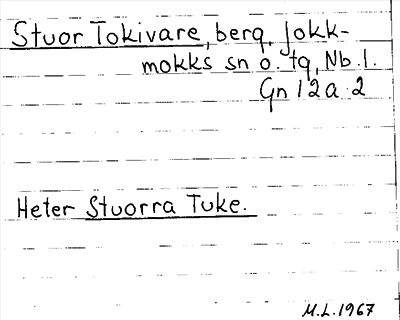 Stuor Tokivare, berg, Jokk-
mokks sn o. tg, Nb. l.
Gn 12 a 2
Heter Stuorra Tuke.
M.L. 1967